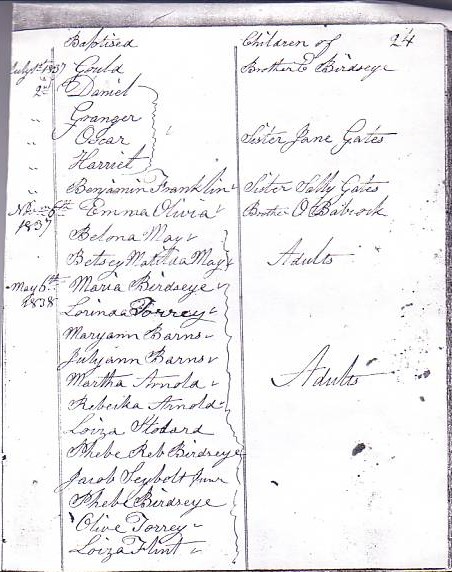 Baptised Children of 24
July 1st 1837 Gould Brother E Birdseye
2d Daniel
" Granger
" Oscar Sister Jane Gates
" Harriet
" Benjamin Franklin Sister Sally Gates
6th Emma Olivia Brother O Babcock
1837
Belona May
Betsey Matilda May Adults
May 6th Maria Birdseye
1838 Lorinda Torrey
Maryann Barns
Julyann Barns
Martha Arnold Adults
Rebecka Arnold
Loiza Stodard
Phebe Reb Birdseye
Jacob Seybolt Junr
Phebe Birdseye
Olive Torrey
Loiza Flint